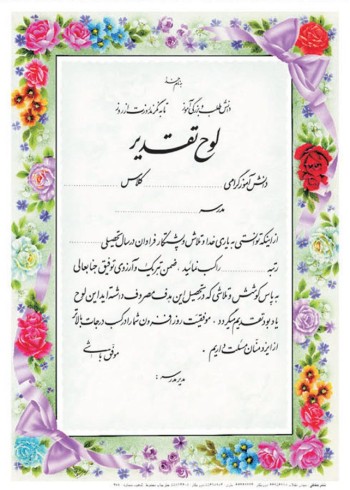 بنام خدا
دانش طلب و بزرگی آموز تا به نگرند روزت از روز
لوح تقدیر
دانش آموز گرامی .......... کلاس ..........
مدرسه ..........
از اینکه توانستی به یاری خدا و تلاش و پشتکار فراوان در سال تحصیلی ..........
رتبه .......... را کسب نمائید، ضمن تبریک و آرزوی توفیق جنابعالی
به پاس کوشش و تلاشی که در تحصیل این هدف مصروف داشته اید این لوح
یادبود تقدیم میگردد، موفقیت روزافزون شما را در کسب درجات بالاتر
از ایزد منان مسئلت داریم.
موفق باشی
مدیر مدرسه: